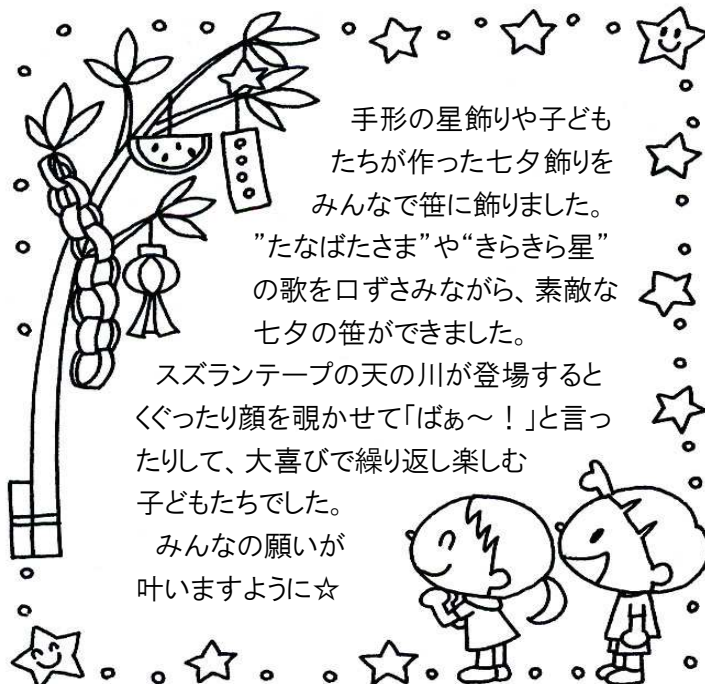 手形の星飾りや子ども
たちが作った七夕飾りを
みんなで笹に飾りました。
”たなばたさま”や“きらきら星”
の歌を口ずさみながら、素敵な
七夕の笹ができました。
スズランテープの天の川が登場すると
くぐったり顔を覗かせて「ばぁ～！」と言っ
たりして、大喜びで繰り返し楽しむ
子どもたちでした。
みんなの願いが
叶いますように☆